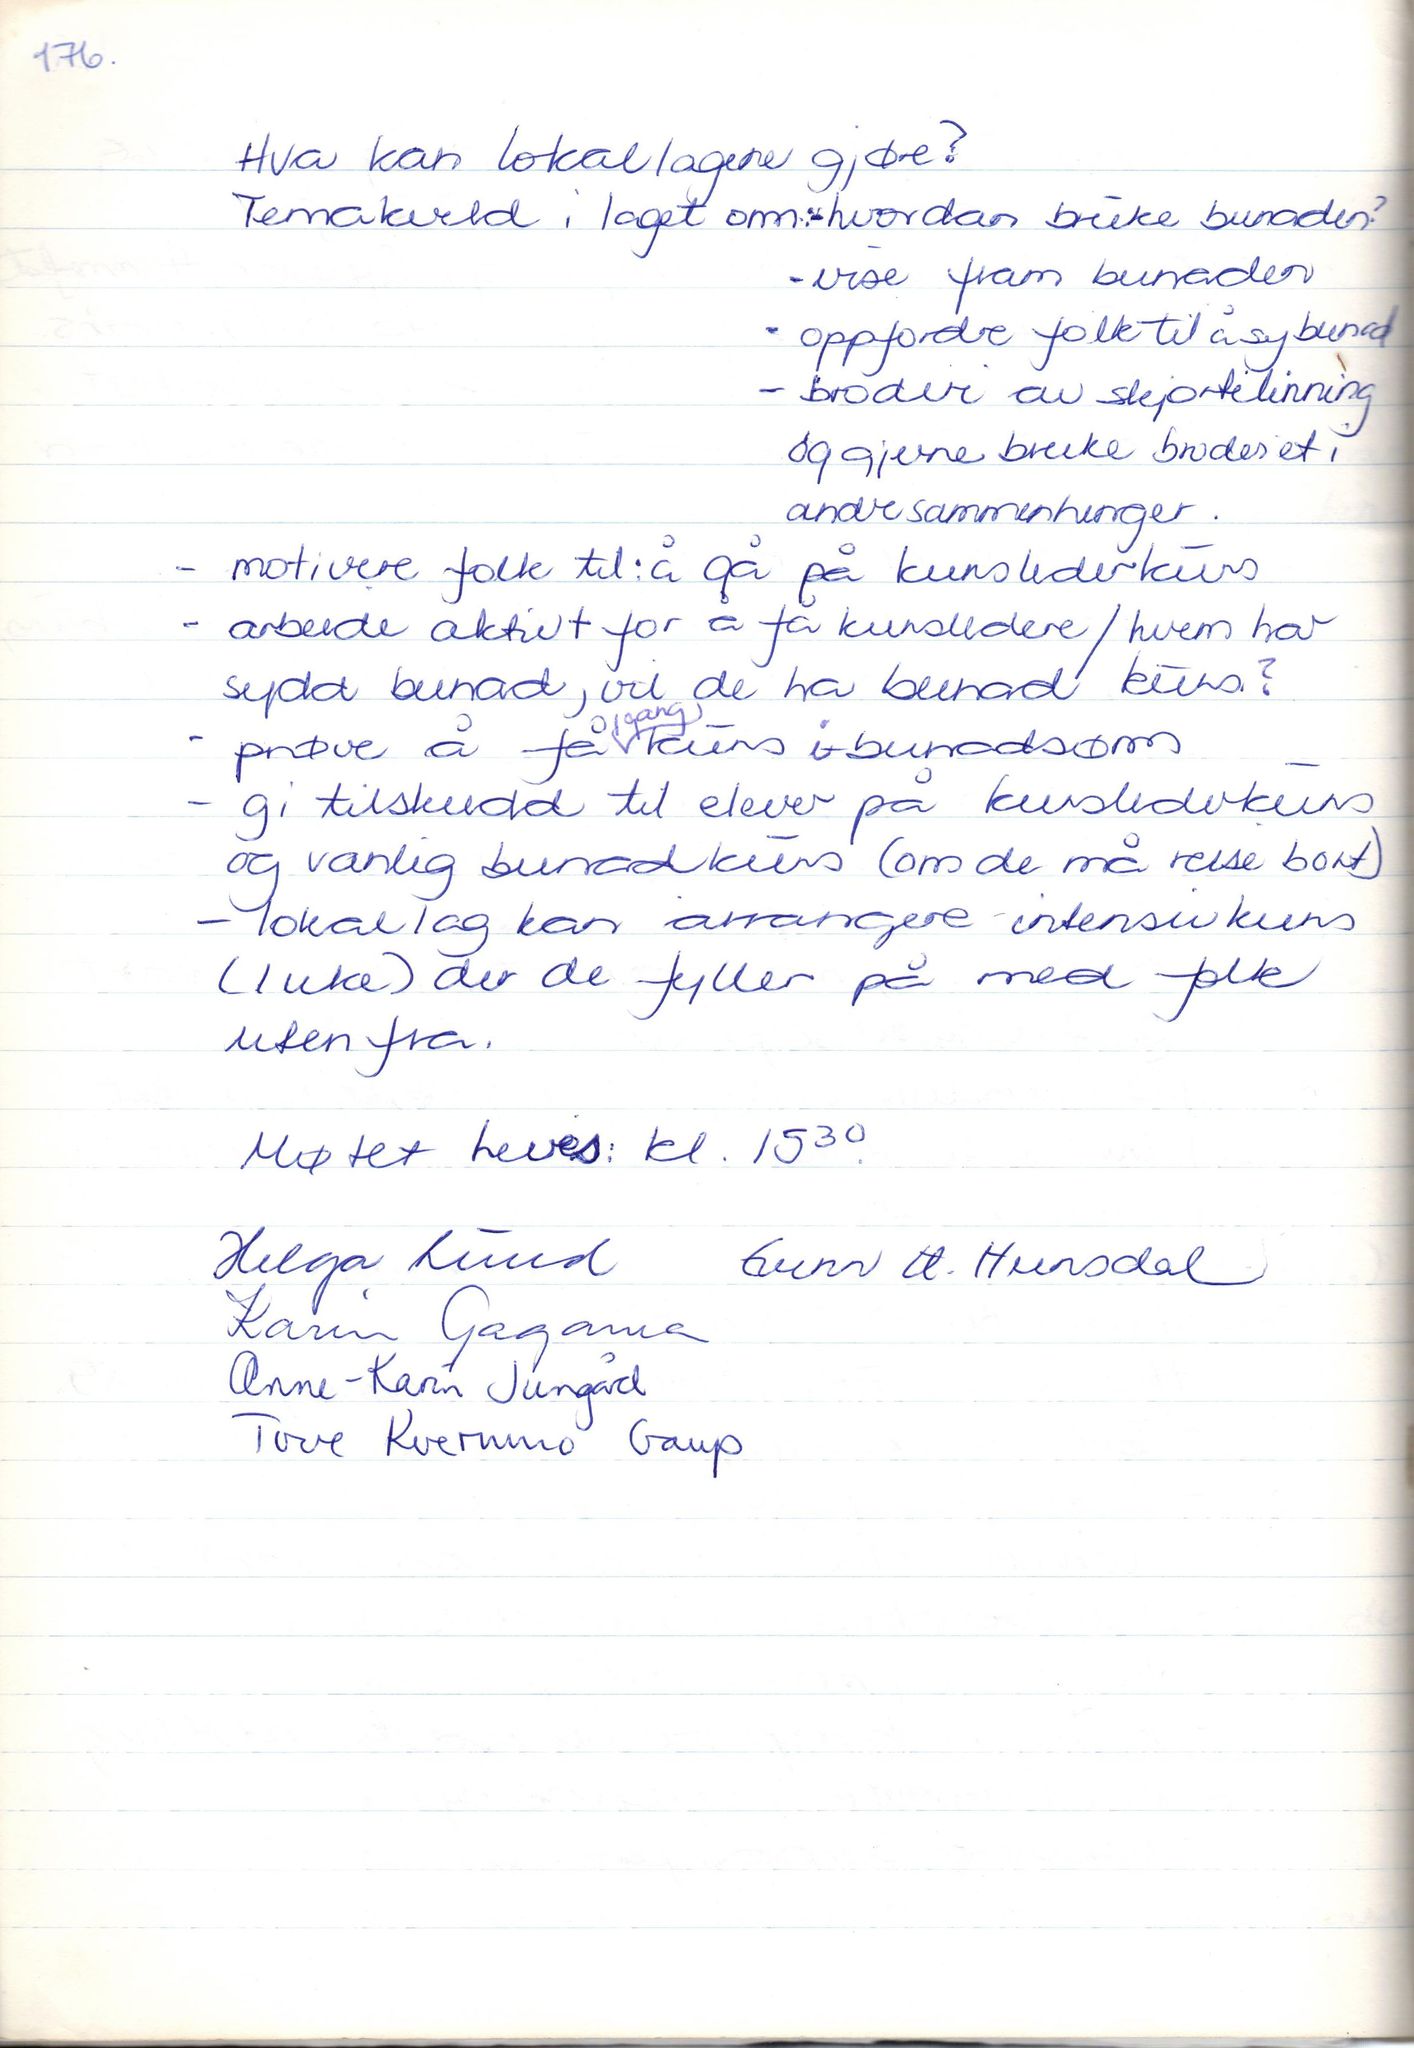 176.
Hva kan lokallagene gjøre?
Temakveld i laget om: - hvordan bruke bunaden?
- vise fram bunaden
- oppfordre folk til å sy bunad
- broderi av skjortelinning
og gjerne bruke broderiet i
andre sammenhenger.
- motivere folk til: å gå på kurslederkurs
- arbeide aktivt for å få kursledere / hvem har
sydd bunad, vil de ha bunad kurs?
- prøve å få igang kurs i bunadsøm
- gi tilskudd til elever på kurslederkurs
og vanlig bunadkurs (om de må reise bort)
- lokallag kan arrangere intensivkurs
(1 uke) der de fyller på med folk
utenfra.
Møtet heves: kl. 15³⁰.
Helga Lund Gunn H. Hunsdal
Karin Gagama
Anne-Karin Jungård
Tove Kvernmo Gaup